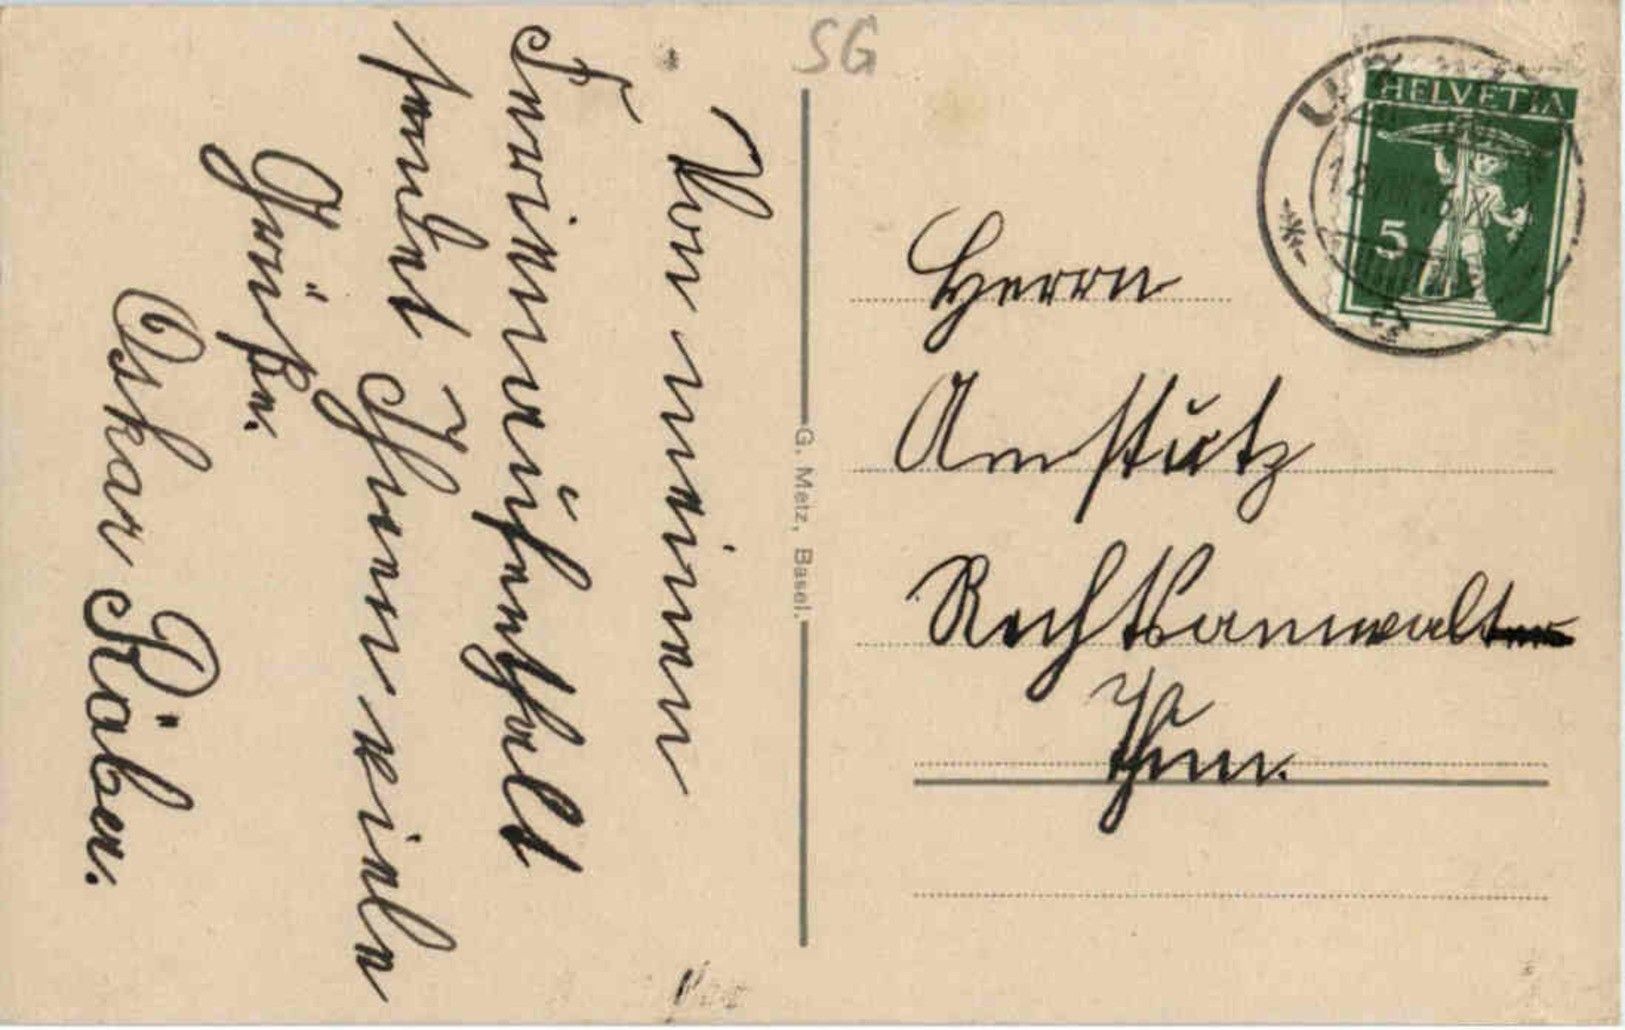 SG
HELVETIA
5
Von meinem
Ferienaufenthalt
sendet Ihnen viele
Grüße.
Oskar Räber.
G. Metz, Basel.
Herrn
Amstutz
Rechtsanwalt
Thun.